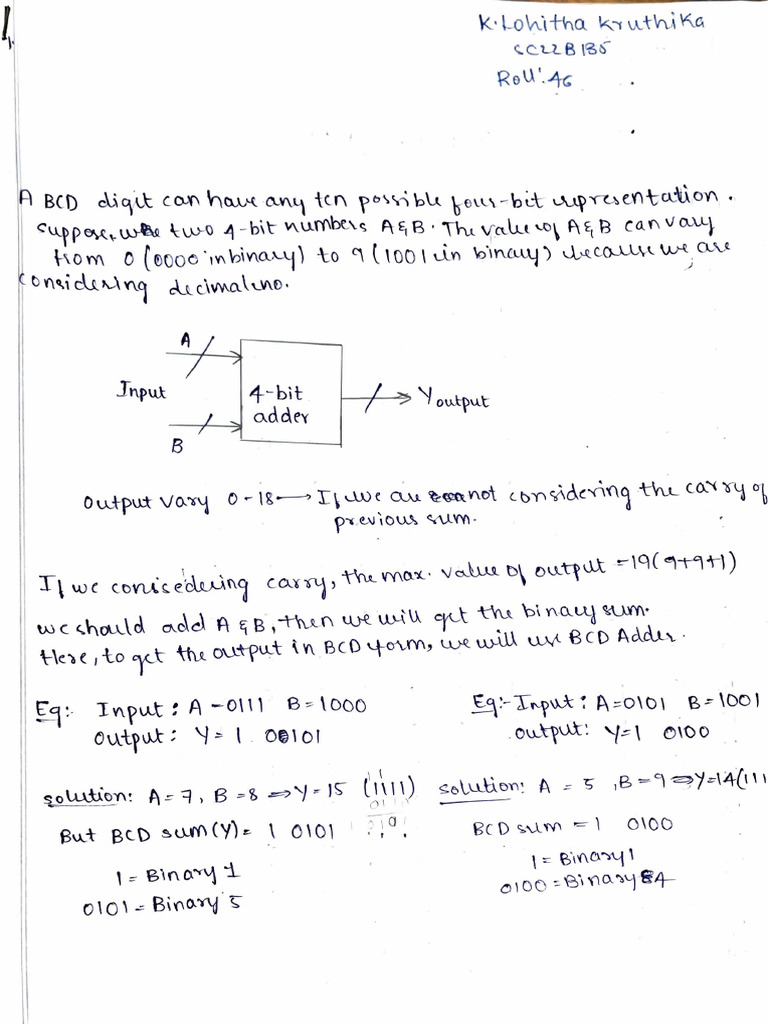 1.
K. Lohitha Kruthika
SC22B135
Roll: 46
A BCD digit can have any ten possible four-bit representation.
Suppose, two 4-bit numbers A & B. The value of A & B can vary
from 0 (0000 in binary) to 9 (1001 in binary) because we are
considering decimal no.
A
Input
4-bit
adder
Y output
B
Output vary 0-18 → If we are not considering the carry of
previous sum.
If we conisedering carry, the max. value of output = 19 (9+9+1)
we should add A & B, then we will get the binary sum.
Here, to get the output in BCD form, we will use BCD Adder.
Eg:- Input: A - 0111 B = 1000
Output: Y = 1 00101
solution: A = 7, B = 8 ⇒ Y = 15 (1111)
But BCD sum (Y) = 1 0101
1 = Binary 1
0101 = Binary 5
Eg:- Input: A = 0101 B = 1001
output: Y = 1 0100
solution: A = 5, B = 9 ⇒ Y = 14 (111
BCD sum = 1 0100
1 = Binary 1
0100 = Binary 4